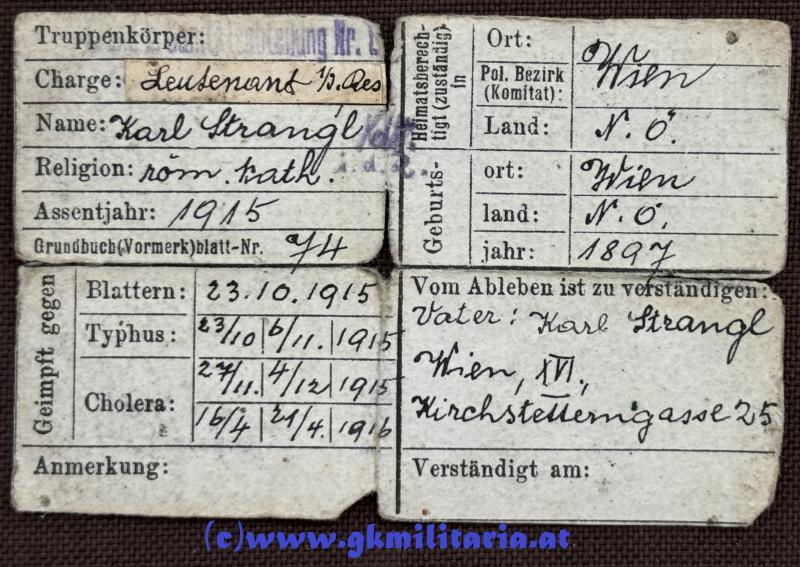 Truppenkörper: Nr.
Charge: Leutenant i/d. Res
Name: Karl Strangl
Religion: röm. kath.
Assentjahr: 1915
Grundbuch(Vormerk)blatt-Nr. 74
Heimatsberechtigt (zuständig) in
Ort: Wien
Pol. Bezirk (Komitat):
Land: N. Ö.
Geburts-
ort: Wien
land: N. Ö.
jahr: 1897
Geimpft gegen
Blattern: 23.10.1915
Typhus: 23/10 6/11. 1915
Cholera: 27/11. 4/12 1915
16/4 21/4. 1916
Anmerkung:
Vom Ableben ist zu verständigen:
Vater: Karl Strangl
Wien, XVI,
Kirchstetterngasse 25
Verständigt am:
(c)www.gkmilitaria.at